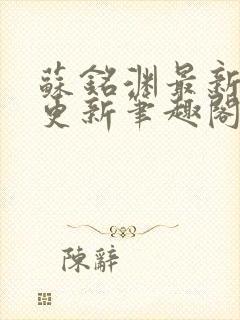 蘇銘淵最新
更新筆趣閣
陳辭